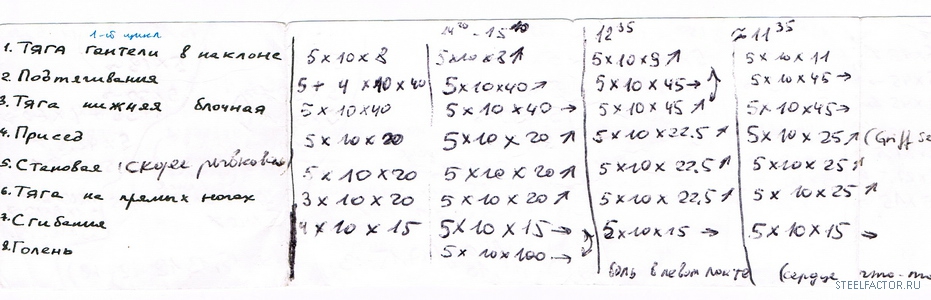 1-й цикл 14²⁰ - 15¹⁰ 12³⁵ ≈ 11³⁵
1. Тяга гантели в наклоне 5×10×8 5×10×8↑ 5×10×9↑ 5×10×11
2. Подтягивания 5+4×10×40 5×10×40↑ 5×10×45→ 5×10×45→
3. Тяга нижняя блочная 5×10×40 5×10×40→ 5×10×45↑ 5×10×45→
4. Присед 5×10×20 5×10×20↑ 5×10×22.5↑ 5×10×25↑ (Griff
5. Становая (скорее 5×10×20 5×10×20↑ 5×10×22,5↑ 5×10×25↑
6. Тяга на прямых ногах 3×10×20 5×10×20↑ 5×10×22,5↑ 5×10×25↑
7. Сгибания 4×10×15 5×10×15→ 5×10×15→ 5×10×15→
8. Голень 5×10×100→
боль в левом локте (сердце что-то
STEELFACTOR.RU